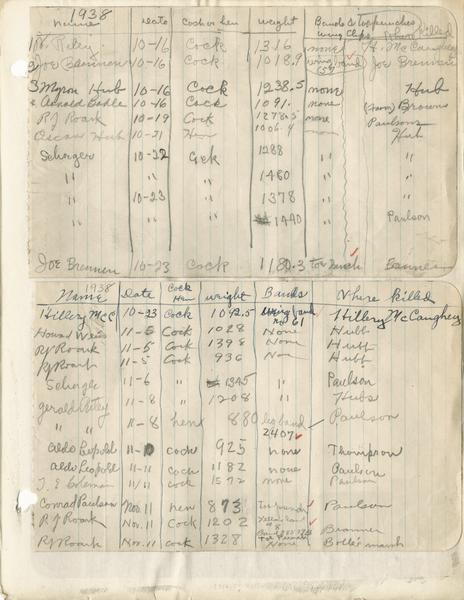 1938
Name Date Cock or Hen weight Bands & toe punches Where Killed
wing clips
1 W. Riley 10-16 Cock 1316 none H. McCaughey
2 Joe Brennan 10-16 Cock 1018.9 wing band Joe Brennan
3 Myron Hub 10-16 Cock 1238.5 none Hub
10-16 Cock 1091. none (Farm) Browns
RJ Roark 10-19 Cock 1278.5 none Paulsons
Oscar Hub 10-21 Hen 1006.9 none Hub
Schorger 10-22 Cock 1288 " "
" " 1460 " "
" 10-23 " 1378 " "
" " 1440 " Paulson
Joe Brennen 10-23 Cock 1180.3 toe punch
1938
Name Date Cock Hen weight Bands Where killed
Hillery McC 10-23 Cock 1042.5 wing band no 61 Hillery McCaughey
Howard Weiss 11-5 Cock 1028 None Hubb
RJ Roark 11-5 Cock 1398 None Hubb
RJ Roark 11-5 Cock 936 Non Hubb
Schorger 11-6 " 1345 " Paulson
11-8 " 1208 " Hubs
" " 11-8 hen 880 leg band Paulson
2407
Aldo Leopold 11-10 cock 925 none Thompson
Aldo Leopold 11-11 cock 1182 none Paulson
J. E. Coleman 11/11 cock 1572 none Paulson
Conrad Paulson Nov. 11 hen 873 Paulson
R J Roark Nov. 11 Cock 1202
RJ Roark Nov. 11 cock 1328 None marsh